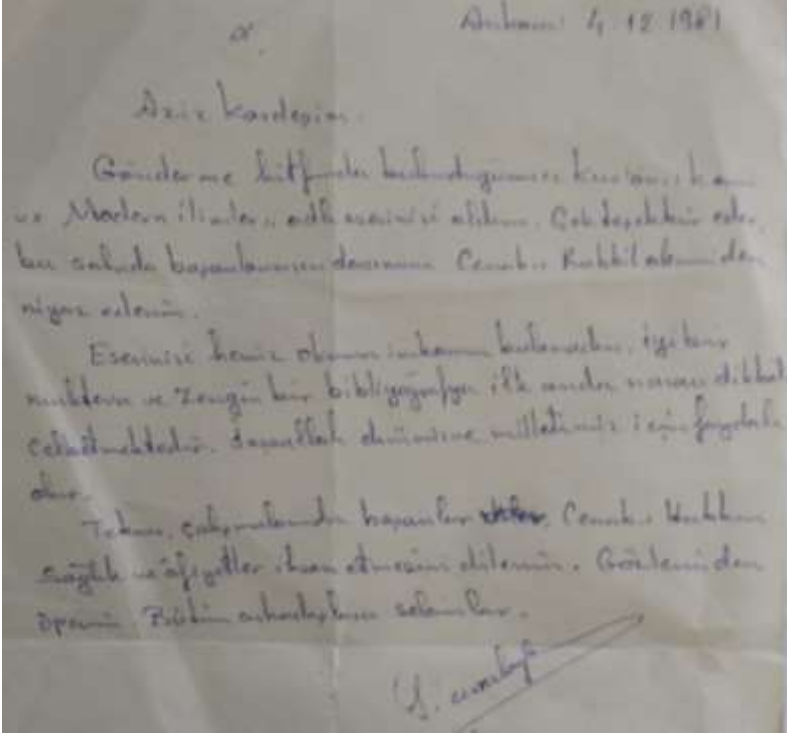 Ankara 4.12.1981
Aziz Kardeşim.
Gönderme lütfunda bulunduğunuz Kur'anı kerim
ve Modern ilimler,, adlı eserinizi aldım. Çok teşekkür eder,
bu sahada başarılarınızın devamını Cenab-ı Rabbil aleminden
niyaz ederim.
Eserinizi henüz okuma imkanı bulamadım, iyi bir
muhteva ve zengin bir bibliyoğrafya ilk anda nazarı dikkati
çelbetmektedir. İnşaallah dinimize milletimiz için faydalı
olur.
Tekrar, çalışmalarında başarılar Cenab-ı Hakkın
sağlık ve âfiyetler ihsan etmesini dilerim. Gözlerinden
öperim Bütün arkadaşlara selamlar.